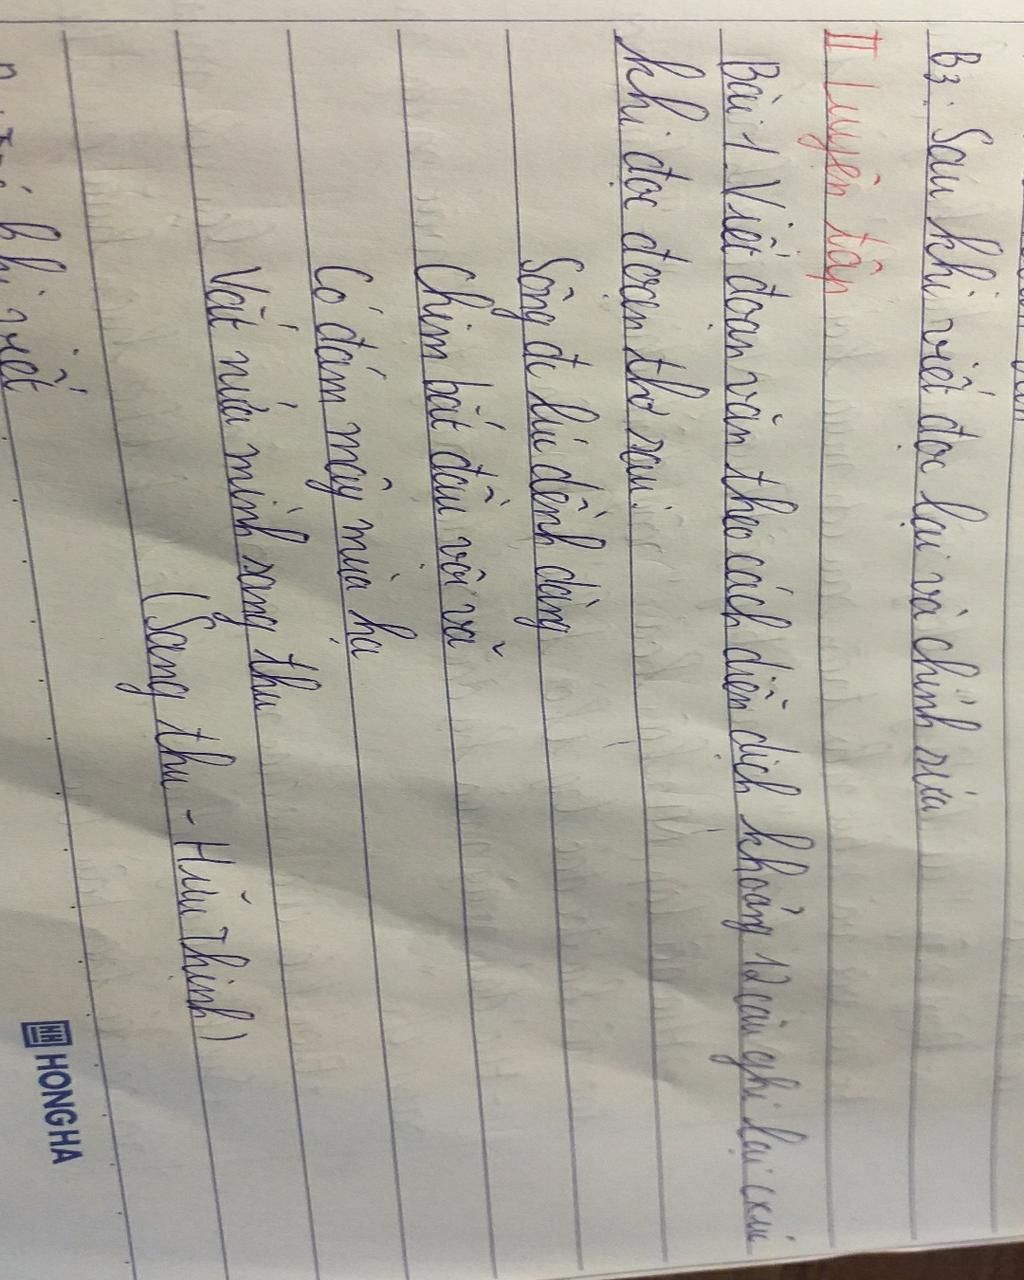 B3: Sau khi viết đọc lại và chỉnh sửa
II Luyện tập
Bài 1 Viết đoạn văn theo cách diễn dịch khoảng 12 câu ghi lại cxúc
khi đọc đoạn thơ sau:
Sông đc lúc dềnh dàng
Chim bắt đầu vội vã
Có đám mây mùa hạ
Vắt nửa mình sang thu
(Sang thu - Hữu Thỉnh)
khi viết
HONG HA